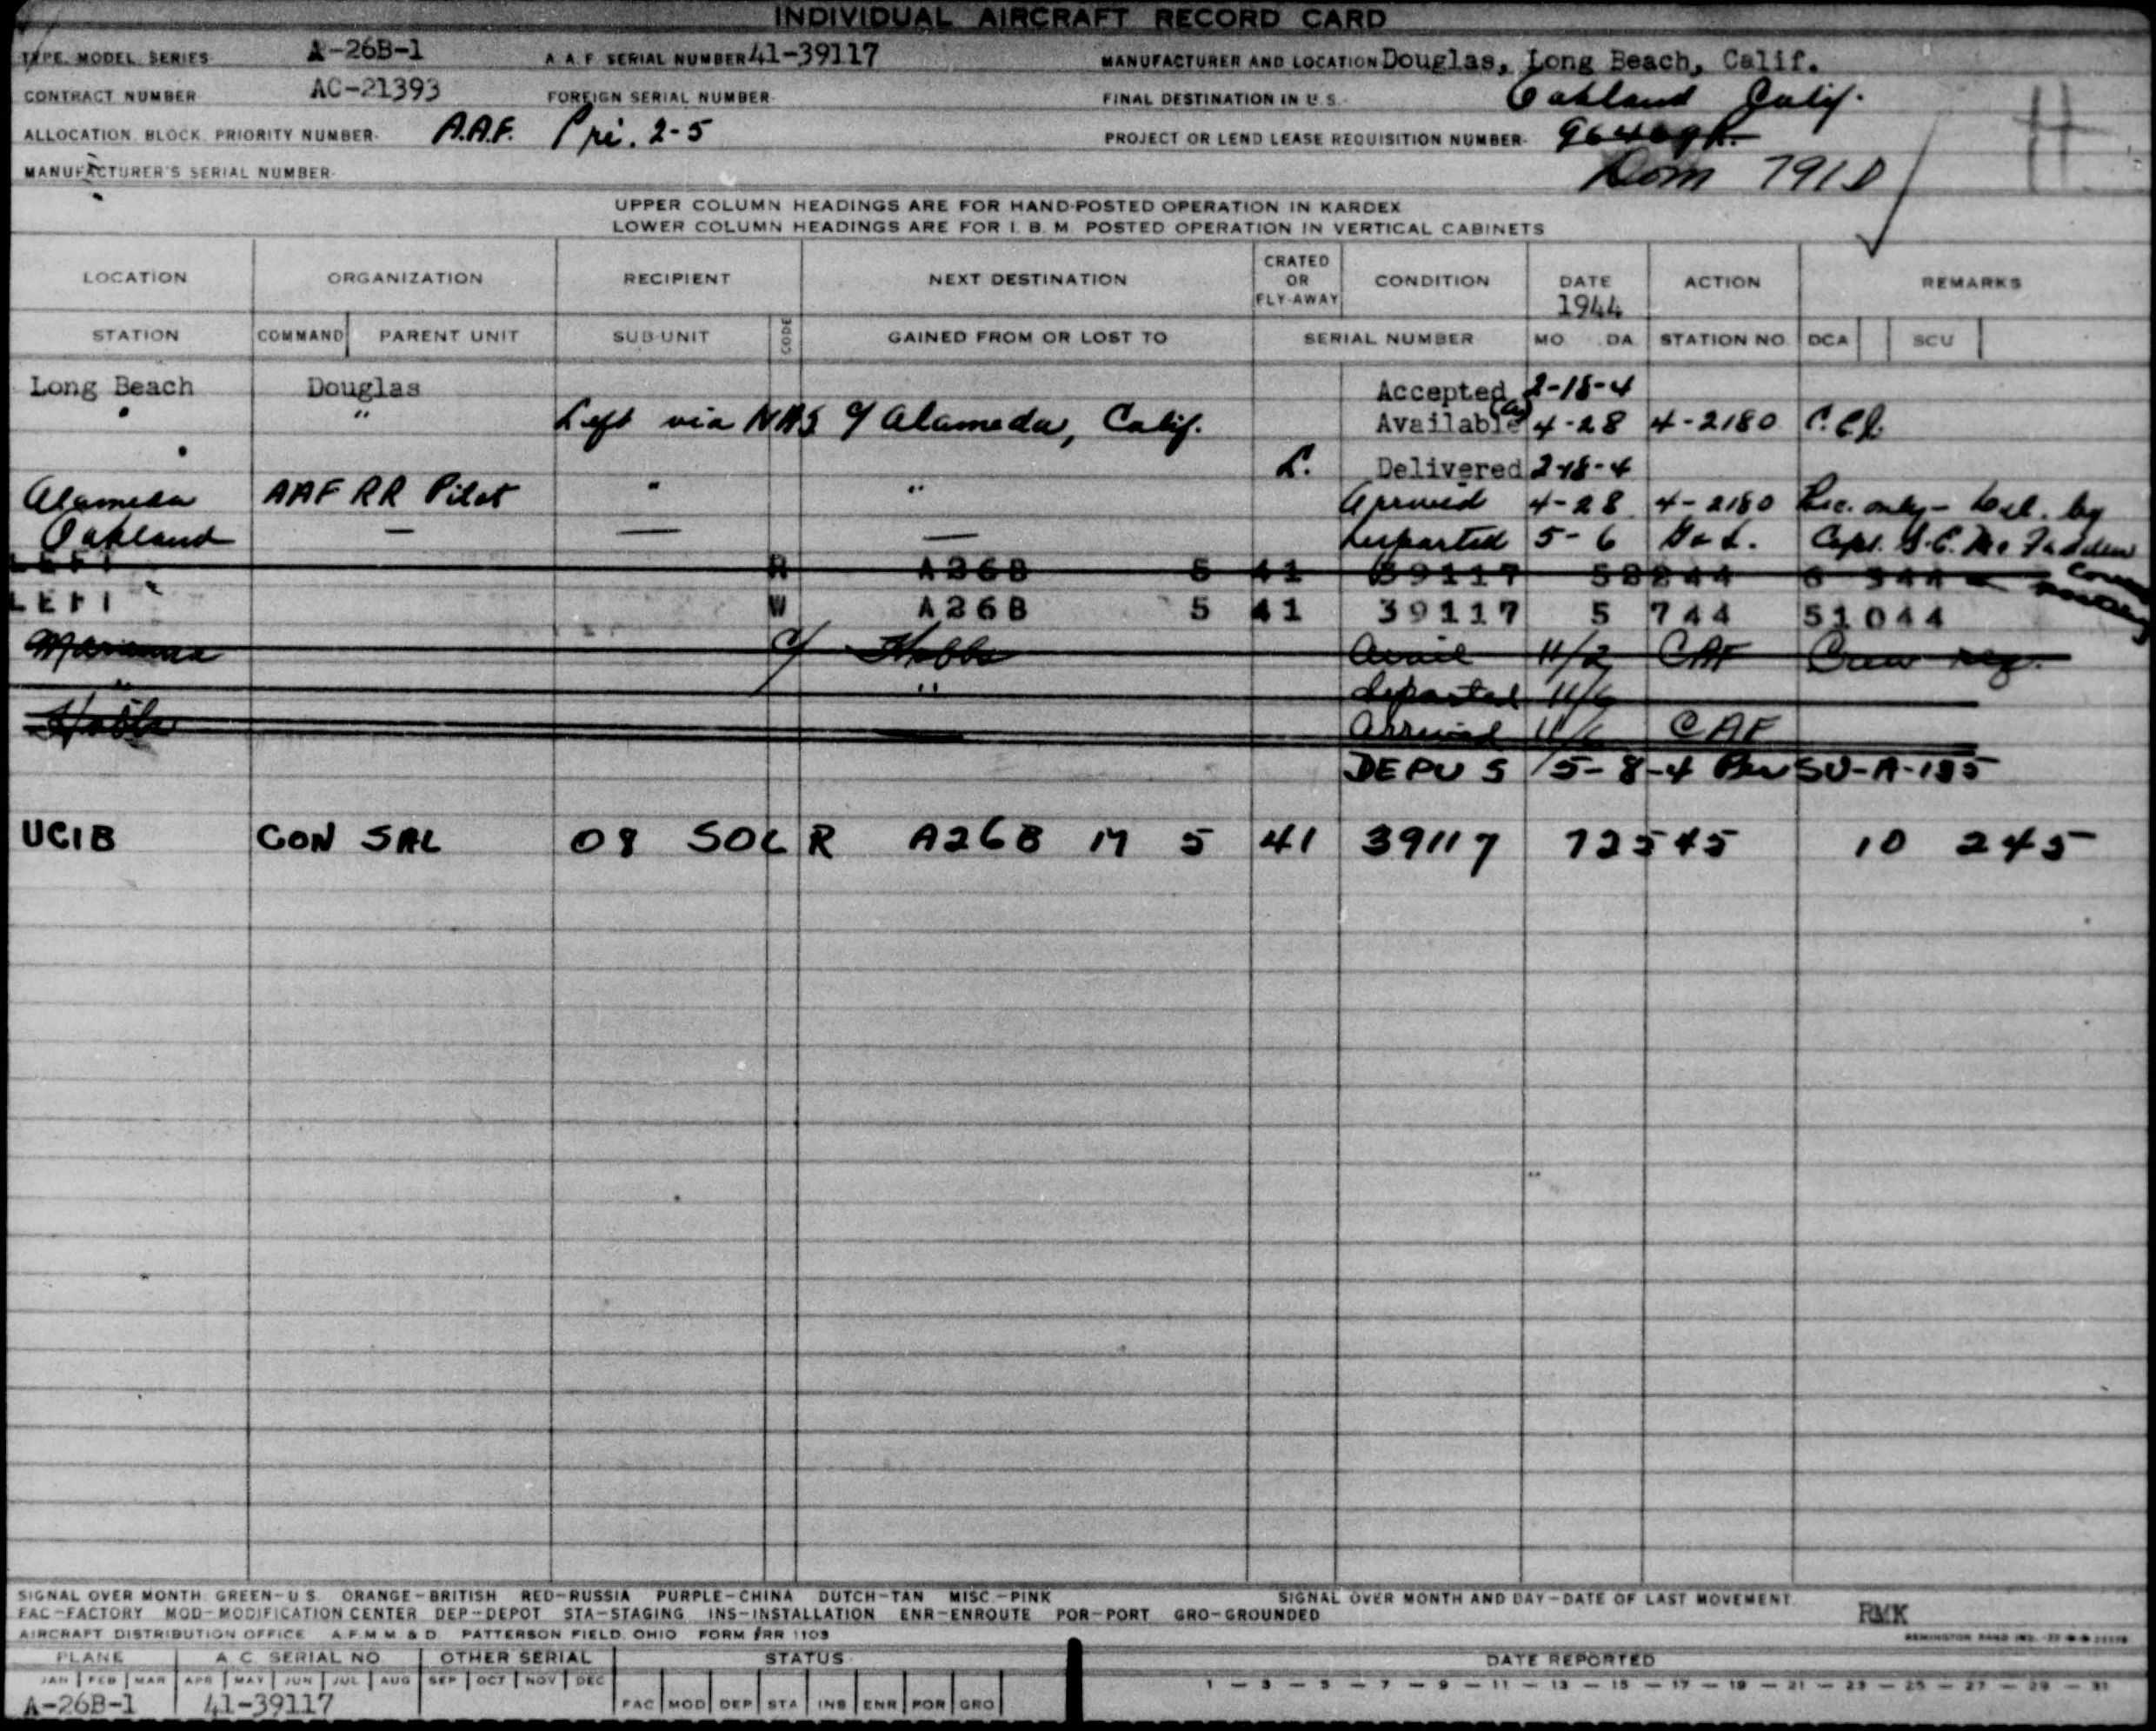 INDIVIDUAL AIRCRAFT RECORD CARD
TYPE, MODEL, SERIES A-26B-1 A. A. F. SERIAL NUMBER 41-39117 MANUFACTURER AND LOCATION Douglas, Long Beach, Calif.
CONTRACT NUMBER AC-21393 FOREIGN SERIAL NUMBER- FINAL DESTINATION IN U. S.- Oakland Calif.
ALLOCATION, BLOCK, PRIORITY NUMBER- A.A.F. Pri. 2-5 PROJECT OR LEND LEASE REQUISITION NUMBER-
MANUFACTURER'S SERIAL NUMBER- Dom 791D
UPPER COLUMN HEADINGS ARE FOR HAND-POSTED OPERATION IN KARDEX
LOWER COLUMN HEADINGS ARE FOR I. B. M. POSTED OPERATION IN VERTICAL CABINETS
LOCATION ORGANIZATION RECIPIENT NEXT DESTINATION CRATED OR FLY-AWAY CONDITION DATE 1944 ACTION REMARKS
STATION COMMAND PARENT UNIT SUB-UNIT CODE GAINED FROM OR LOST TO SERIAL NUMBER MO. DA. STATION NO. DCA SCU
Long Beach Douglas Accepted 2-18-4
" " Left via NAS c/ Alameda, Calif. Available 4-28 4-2180
" L. Delivered 2-18-4
Alameda AAF RR Pilot " " Arrived 4-28 4-2180 Rec. only - Del. by
Oakland — — — Departed 5-6 Capt.
LEFT R A26B 5 41 39117 58244
LEFT W A26B 5 41 39117 5 744 51044
Marianna c/ Hobbs Avail 11/2 CAF Crew req.
" " departed 11/6
Hobbs — Arrived 11/6 CAF
DEPUS 5-8-4 Per SU-A-185
UC1B CON SAL 08 SOC R A26B M 5 41 39117 72545 10 245
SIGNAL OVER MONTH GREEN-U S. ORANGE-BRITISH RED-RUSSIA PURPLE-CHINA DUTCH-TAN MISC.-PINK SIGNAL OVER MONTH AND DAY-DATE OF LAST MOVEMENT
FAC-FACTORY MOD-MODIFICATION CENTER DEP-DEPOT STA-STAGING INS-INSTALLATION ENR-ENROUTE POR-PORT GRO-GROUNDED RMK
AIRCRAFT DISTRIBUTION OFFICE A.F.M.M. & D. PATTERSON FIELD, OHIO FORM #RR 1103
PLANE A C. SERIAL NO OTHER SERIAL STATUS DATE REPORTED
JAN FEB MAR APR MAY JUN JUL AUG SEP OCT NOV DEC 1 - 3 - 5 - 7 - 9 - 11 - 13 - 15 - 17 - 19 - 21 - 23 - 25 - 27 - 29 - 31
A-26B-1 41-39117 FAC MOD DEP STA INS ENR POR GRO